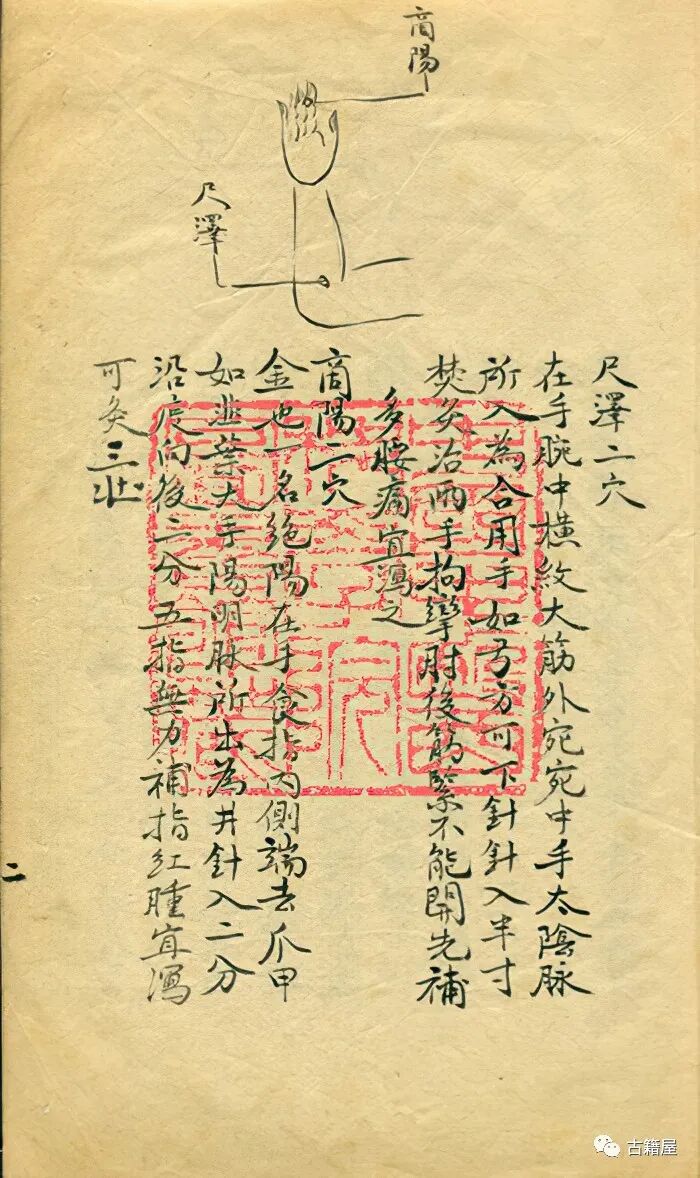 商陽
尺澤
尺澤二穴
在手腕中横紋大筋外宛宛中手太陰脉
所入為合用手如弓方可下針針入半寸
焚灸治兩手拘攣肘後筋緊不能開先補
多腰痛宜瀉之
商陽二穴
金也一名絶陽在手食指内側端去爪甲
如韭葉大手陽明脉所出為井針入二分
沿皮向後三分五指無力補指紅腫宜瀉
可灸三壯
二
古籍屋